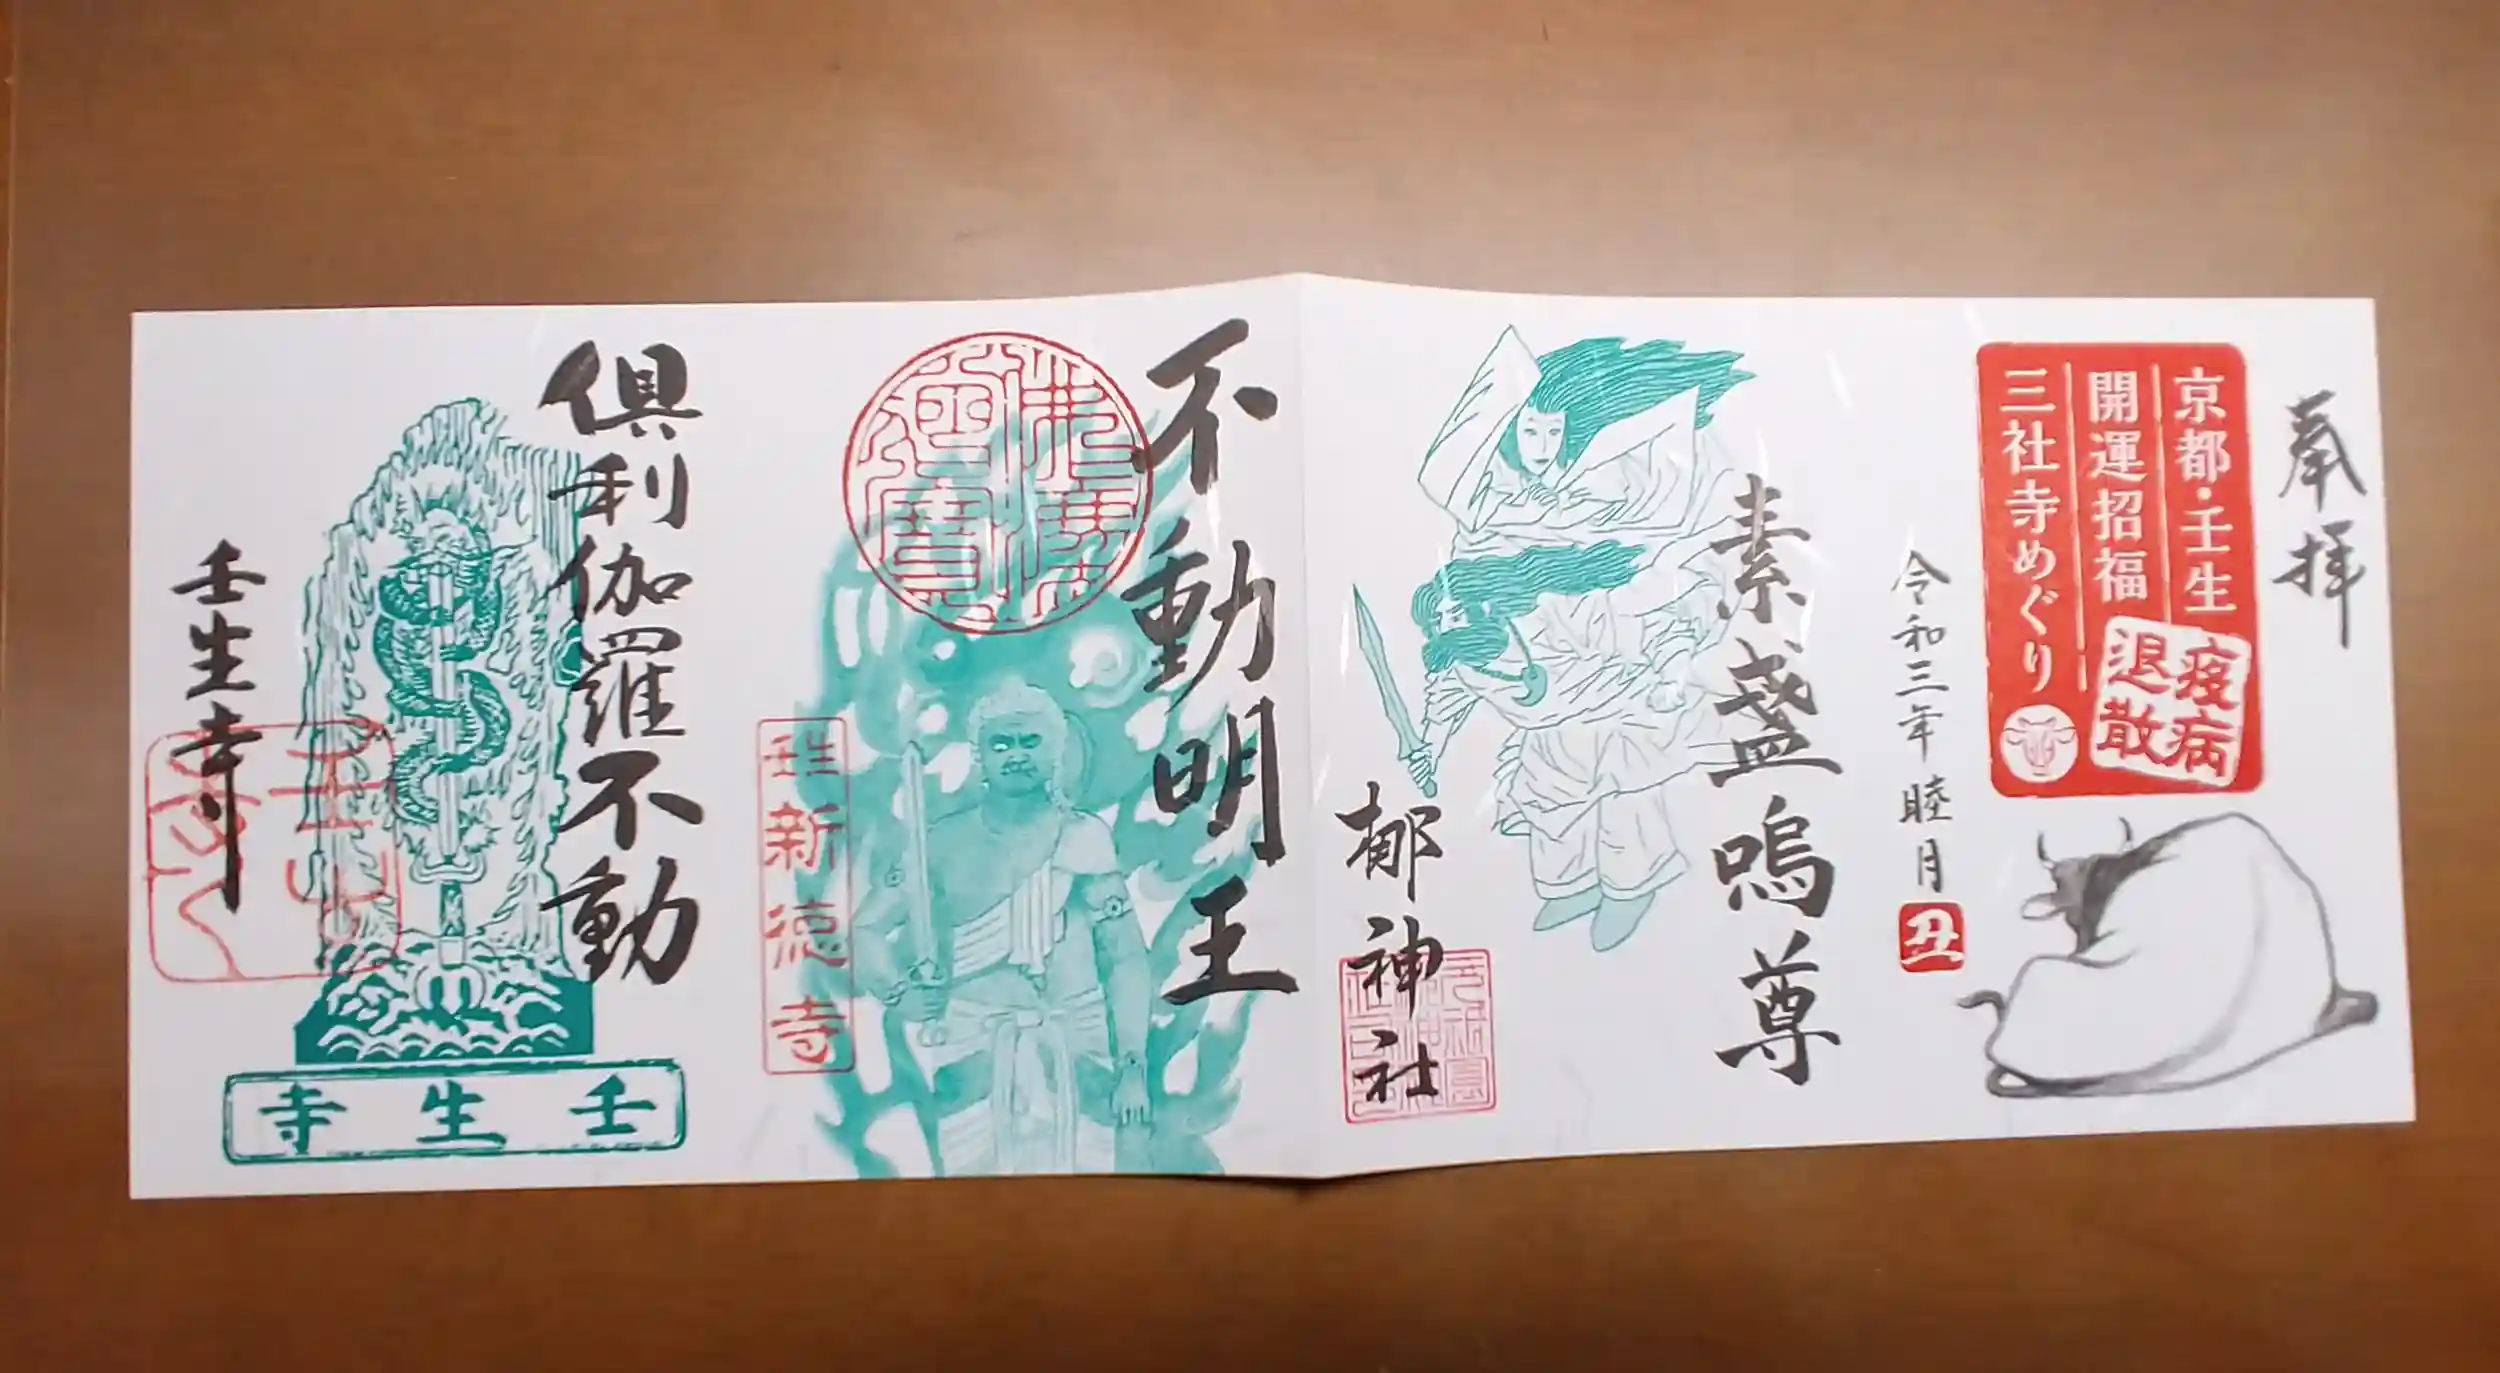 奉拝
京都・壬生
開運招福
三社寺めぐり
疫病
退散
令和三年 睦月
丑
素盞嗚尊
郁神社
不動明王
新徳寺
倶利伽羅不動
壬生寺
寺生壬